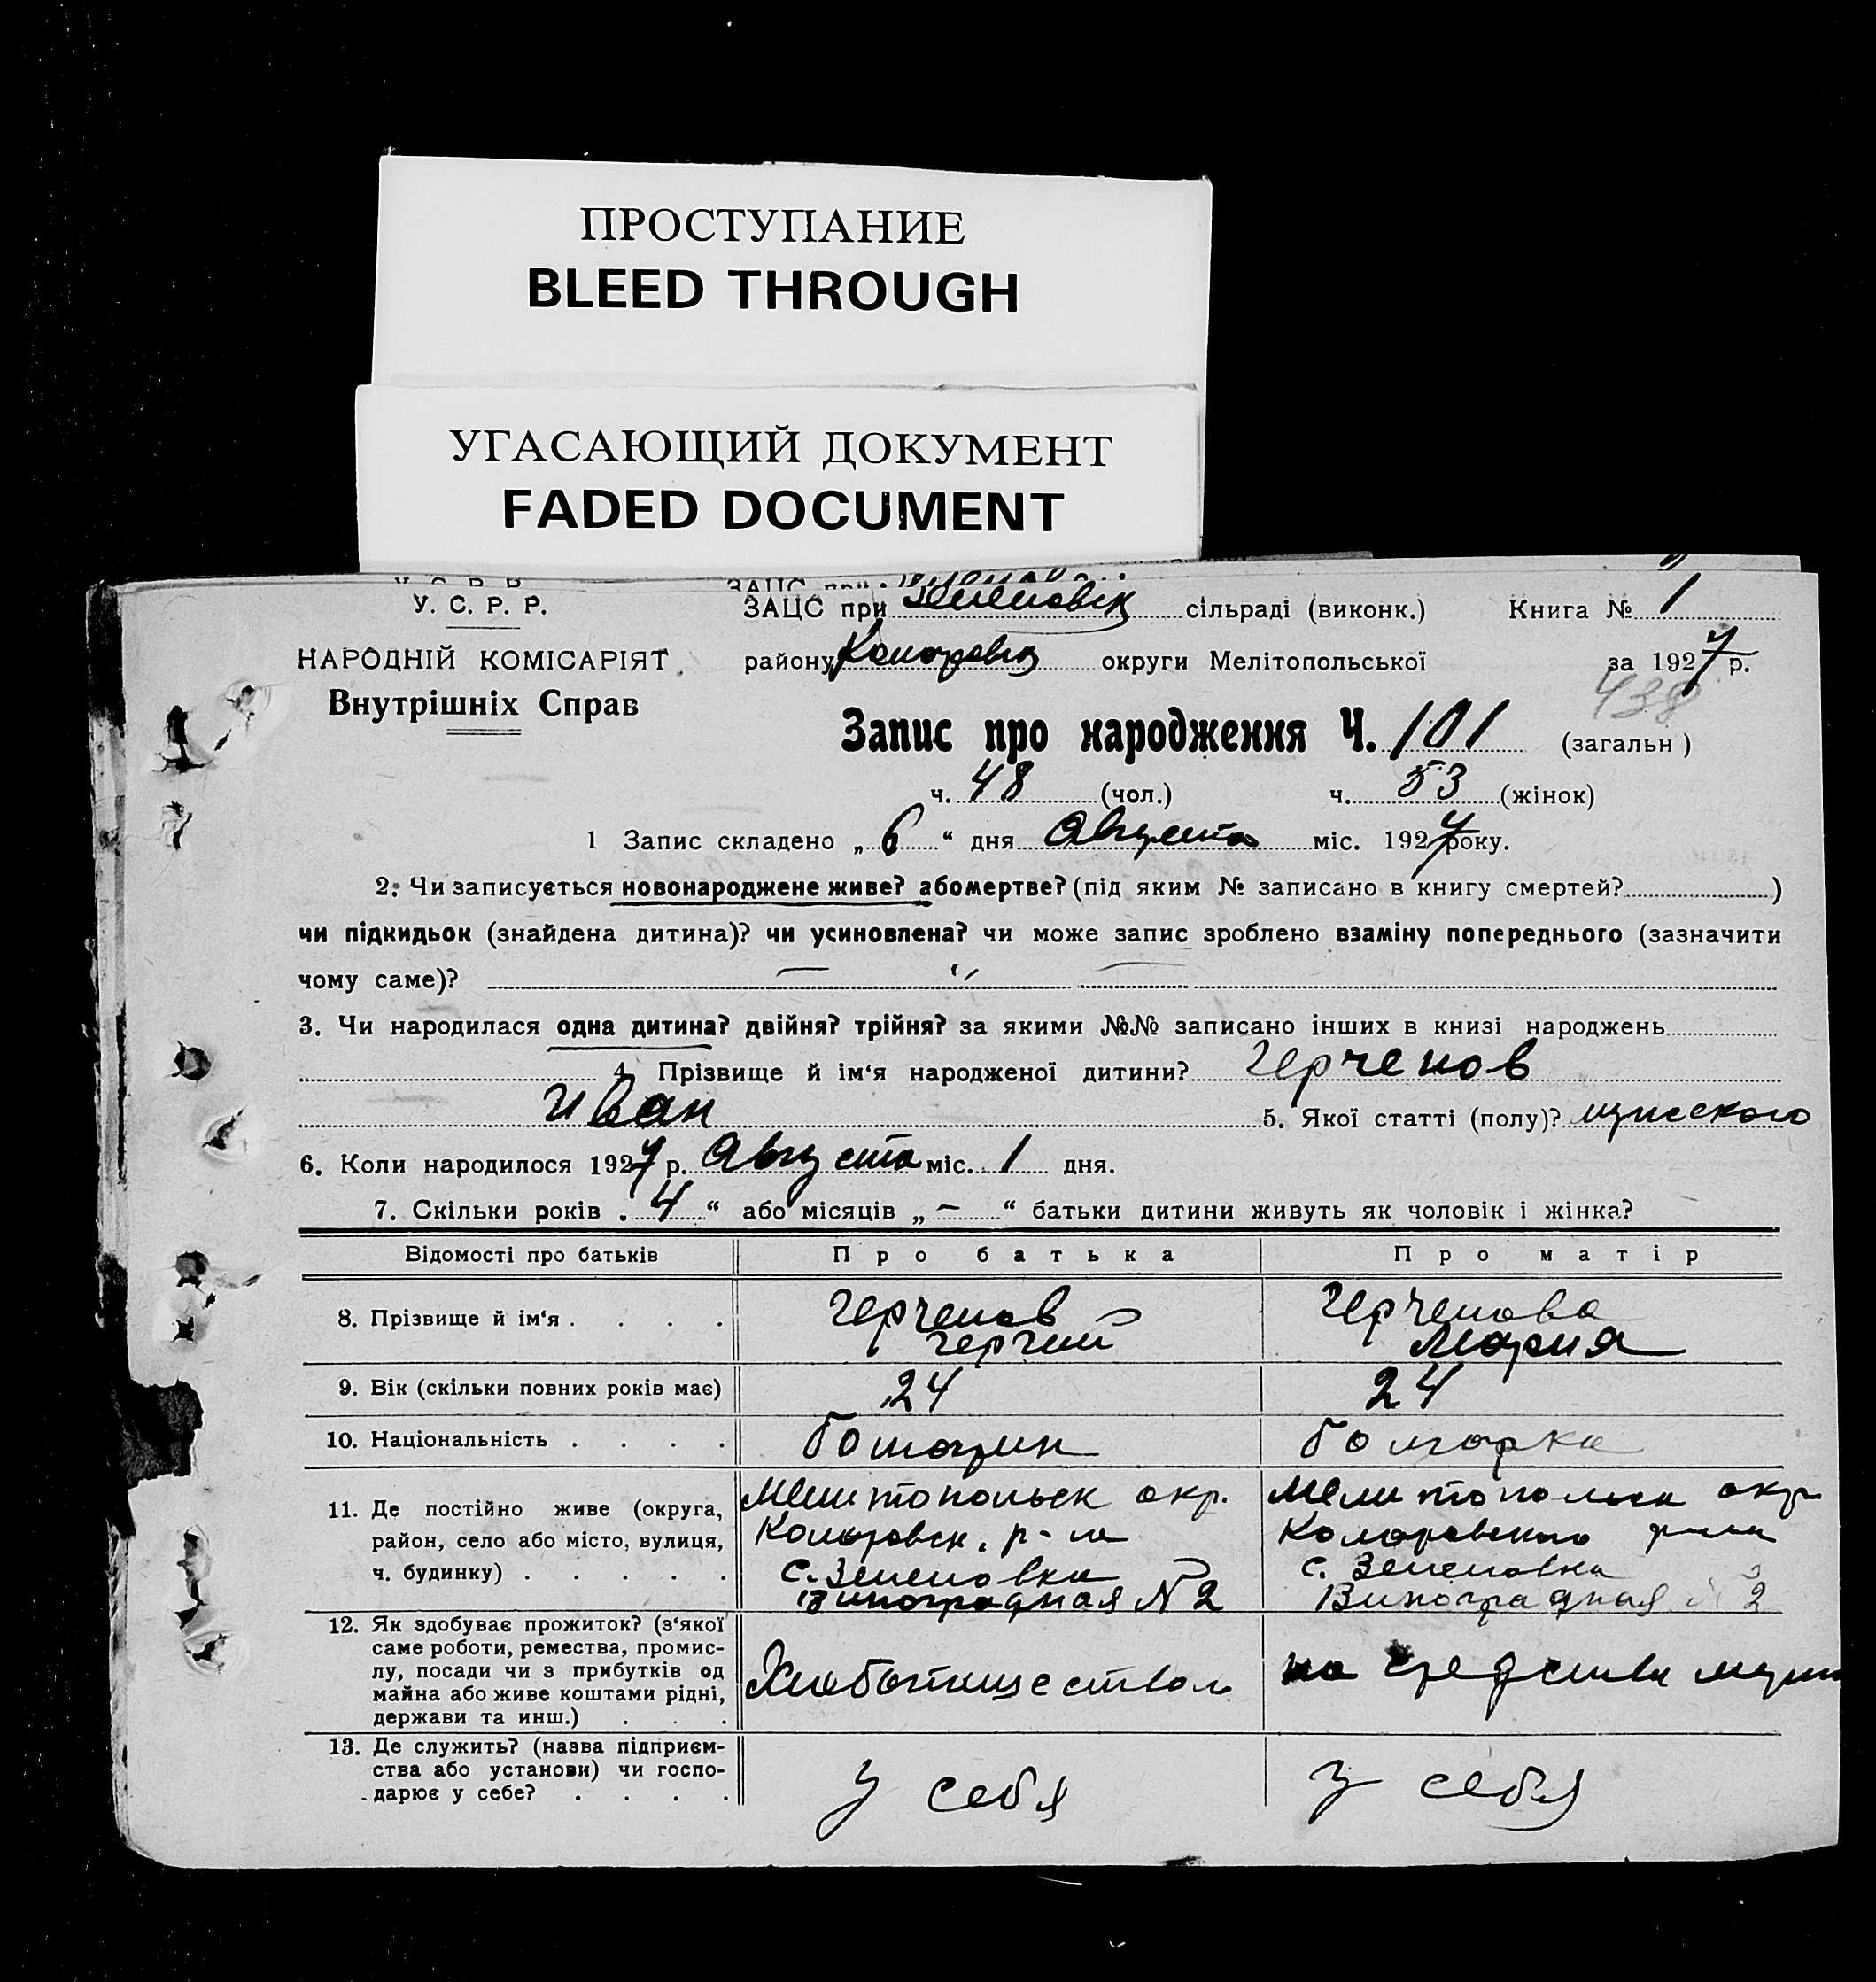 ПРОСТУПАНИЕ
BLEED THROUGH
УГАСАЮЩИЙ ДОКУМЕНТ
FADED DOCUMENT
У. С. Р. Р.
НАРОДНІЙ КОМІСАРІЯТ
Внутрішніх Справ
ЗАЦС при Зеленовск сільраді (виконк.) Книга № 1
району Коларовск округи Мелітопольської за 1927 р.
438
Запис про народження Ч. 101 (загальн)
ч. 48 (чол.) ч. 53 (жінок)
1 Запис складено „ 6 “ дня Августа міс. 1927 року.
2. Чи записується новонароджене живе? або мертве? (під яким № записано в книгу смертей? )
чи підкидьок (знайдена дитина)? чи усиновлена? чи може запис зроблено взаміну попереднього (зазначити
чому саме)? — „ —
3. Чи народилася одна дитина? двійня? трійня? за якими №№ записано інших в книзі народжень
4. Прізвище й ім‘я народженої дитини? Герченов
Иван 5. Якої статті (полу)? мужского
6. Коли народилося 1927 р. Августа міс. 1 дня.
7. Скільки років „ 4 “ або місяців „ — “ батьки дитини живуть як чоловік і жінка?
Відомості про батьків Про батька Про матір
8. Прізвище й ім‘я . . . . Герченов Герченова
Мария
9. Вік (скільки повних років має) 24 24
10. Національність . . . . болгарин болгарка
11. Де постійно живе (округа, Мелитопольск окр. Мелитопольск окр.
район, село або місто, вулиця, Коларовск. р-на Коларовского р-на
ч. будинку) . . . . . с. Зеленовка с. Зеленовка
Виноградная № 2 Виноградная № 2
12. Як здобуває прожиток? (з‘якої
саме роботи, ремества, промис-
лу, посади чи з прибутків од
майна або живе коштами рідні, Хлебопашеством на средства мужа
держави та инш.) . . .
13. Де служить? (назва підприєм-
ства або установи) чи госпо-
дарює у себе? . . . . у себя у себя